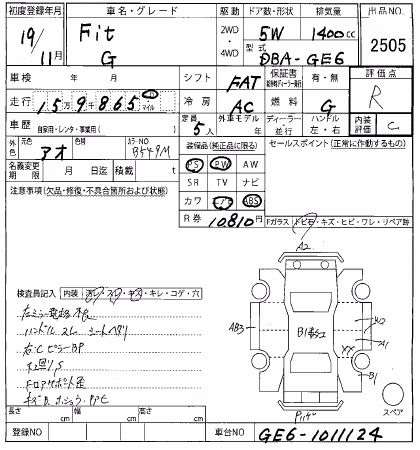 初度登録年月 車名・グレード 駆動 ドア数・形状 排気量 出品NO.
19/11月 Fit G 2WD・4WD 5W 1400cc 2505
型式 DBA-GE6
車検 年 月 シフト FAT 保証書 有・無 評価点 R
走行 15万9865 マイル 冷房 AC 燃料 G
車歴 自家用・レンタ・事業用( ) 定員 5人 外車モデル 年 ディーラー・並行 ハンドル 左・右 内装評価 C
外色 元色 アオ 色替 カラーNO B549M 装備品(純正品に限る) セールスポイント(正常に作動するもの)
名義変更期限 月 日迄 積載 t PS PW AW
注意事項(欠品・修復・不具合箇所および状態) SR TV ナビ
カワ エアB ABS
R券 10810円 Fガラス トビ石・キズ・ヒビ・ワレ・リペア跡
A2
検査員記入 内装 汚レ・スレ・キズ・キレ・コゲ・穴
ハンドルスレ シートヘタリ
右Cピラー BP
下回りS
AB3
W2
A1
XX
B1
スペア
長さ cm 幅 cm 高さ cm
登録NO 車台NO GE6-1011124